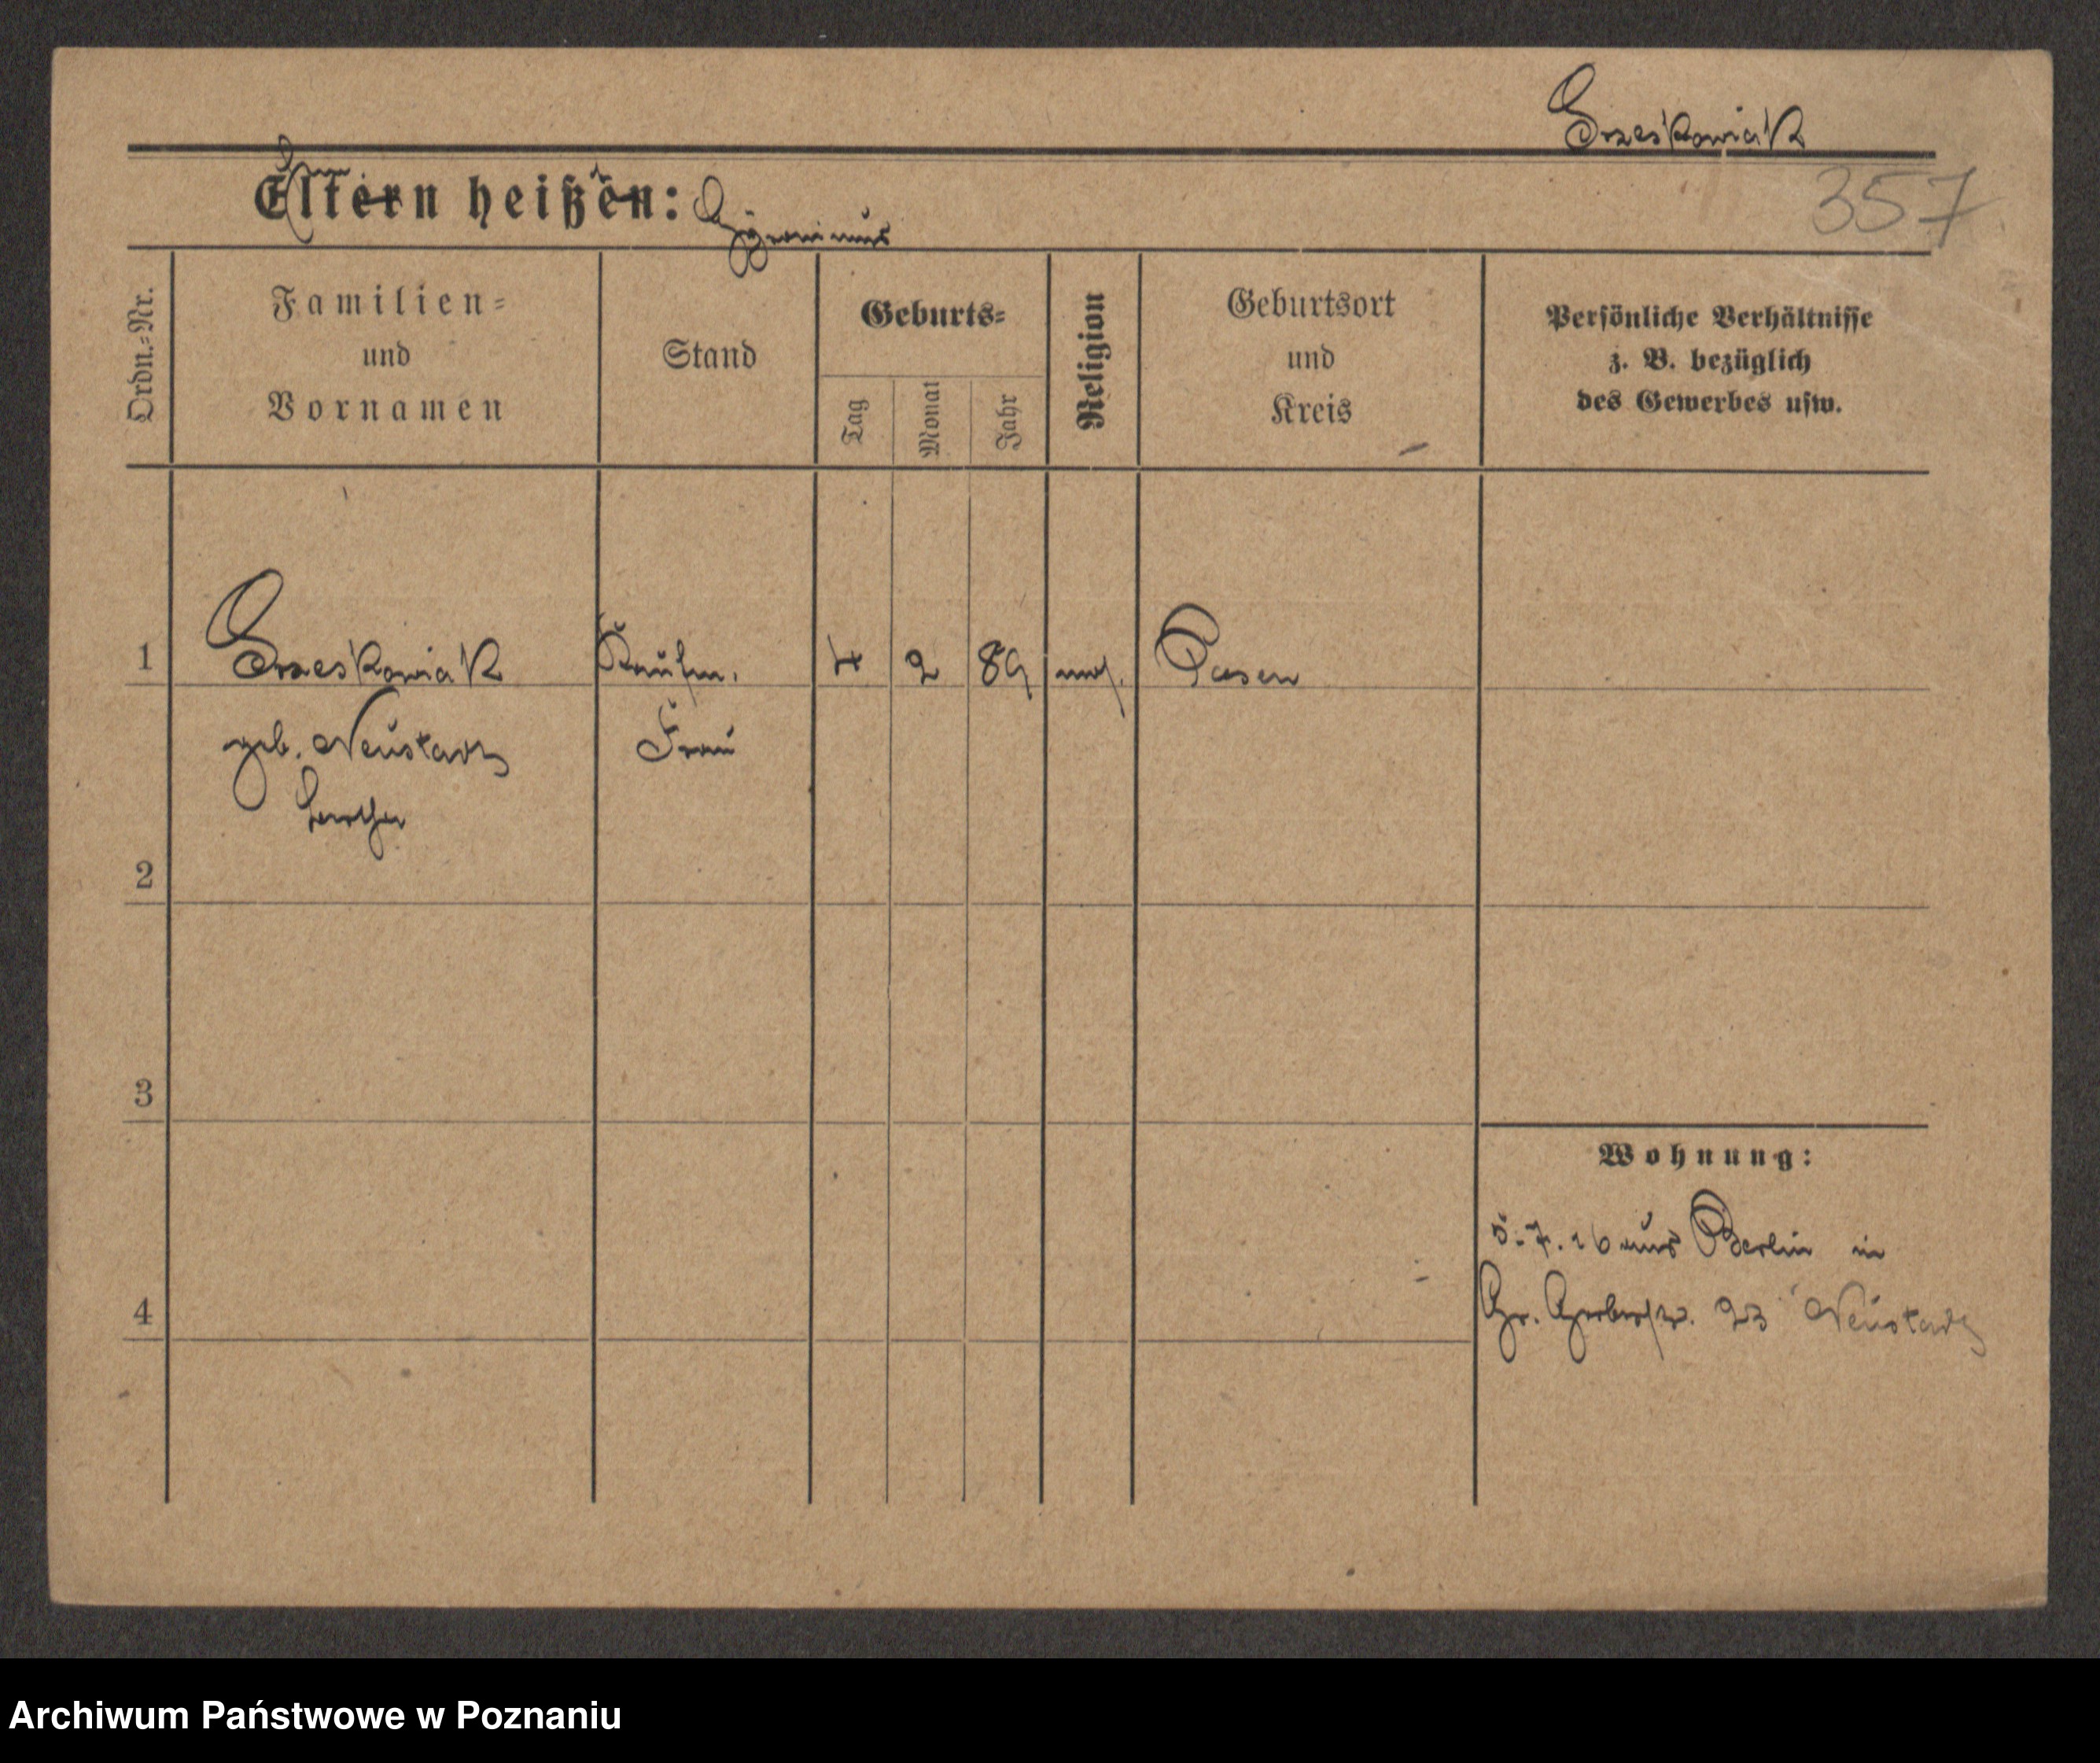 Grzeskowiak
357
Eltern heißen:
Ordn.-Nr.
Familien-
und
Vornamen
Stand
Geburts-
Tag
Monat
Jahr
Religion
Geburtsort
und
Kreis
Persönliche Verhältnisse
z. B. bezüglich
des Gewerbes usw.
1 Grzeskowiak Kaufm. 4 2 89 mos. Posen
geb. Neustadt Frau
2
3
Wohnung:
5.7.26 aus Berlin in
4 Gr. Gerberstr. 23 Neustadt
Archiwum Państwowe w Poznaniu